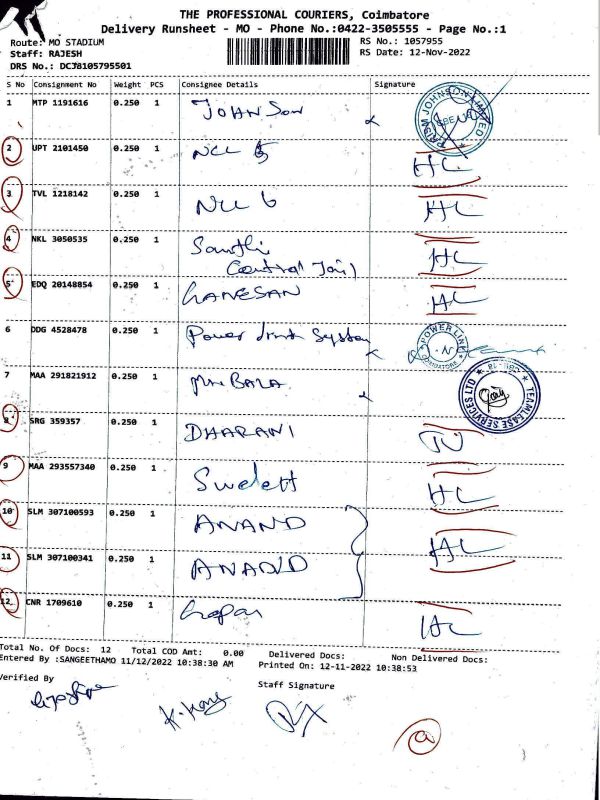 THE PROFESSIONAL COURIERS, Coimbatore
Delivery Runsheet - MO - Phone No.:0422-3505555 - Page No.:1
Route: MO STADIUM
RS No.: 1057955
Staff: RAJESH
RS Date: 12-Nov-2022
DRS No.: DCJ8105795501
S No Consignment No Weight PCS Consignee Details Signature
1 MTP 1191616 0.250 1 JOHNSON
PRISM JOHNSON LIMITED
2 UPT 2101450 0.250 1 NCC HC
3 TVL 1218142 0.250 1 NCC 6 HC
4 NKL 3050535 0.250 1 Santhi HC
Central Jail
5 EDQ 20148854 0.250 1 GANESAN HC
6 DDG 4528478 0.250 1 Power System
POWER LINK
7 MAA 291821912 0.250 1 BALA
TEAMLEASE SERVICES LTD
8 SRG 359357 0.250 1 DHARANI
9 MAA 293557340 0.250 1 HC
10 SLM 307100593 0.250 1 ANAND HC
11 SLM 307100341 0.250 1 ANAND
12 CNR 1709610 0.250 1 HC
Total No. Of Docs: 12 Total COD Amt: 0.00 Delivered Docs: Non Delivered Docs:
Entered By :SANGEETHAMO 11/12/2022 10:38:30 AM Printed On: 12-11-2022 10:38:53
Verified By Staff Signature